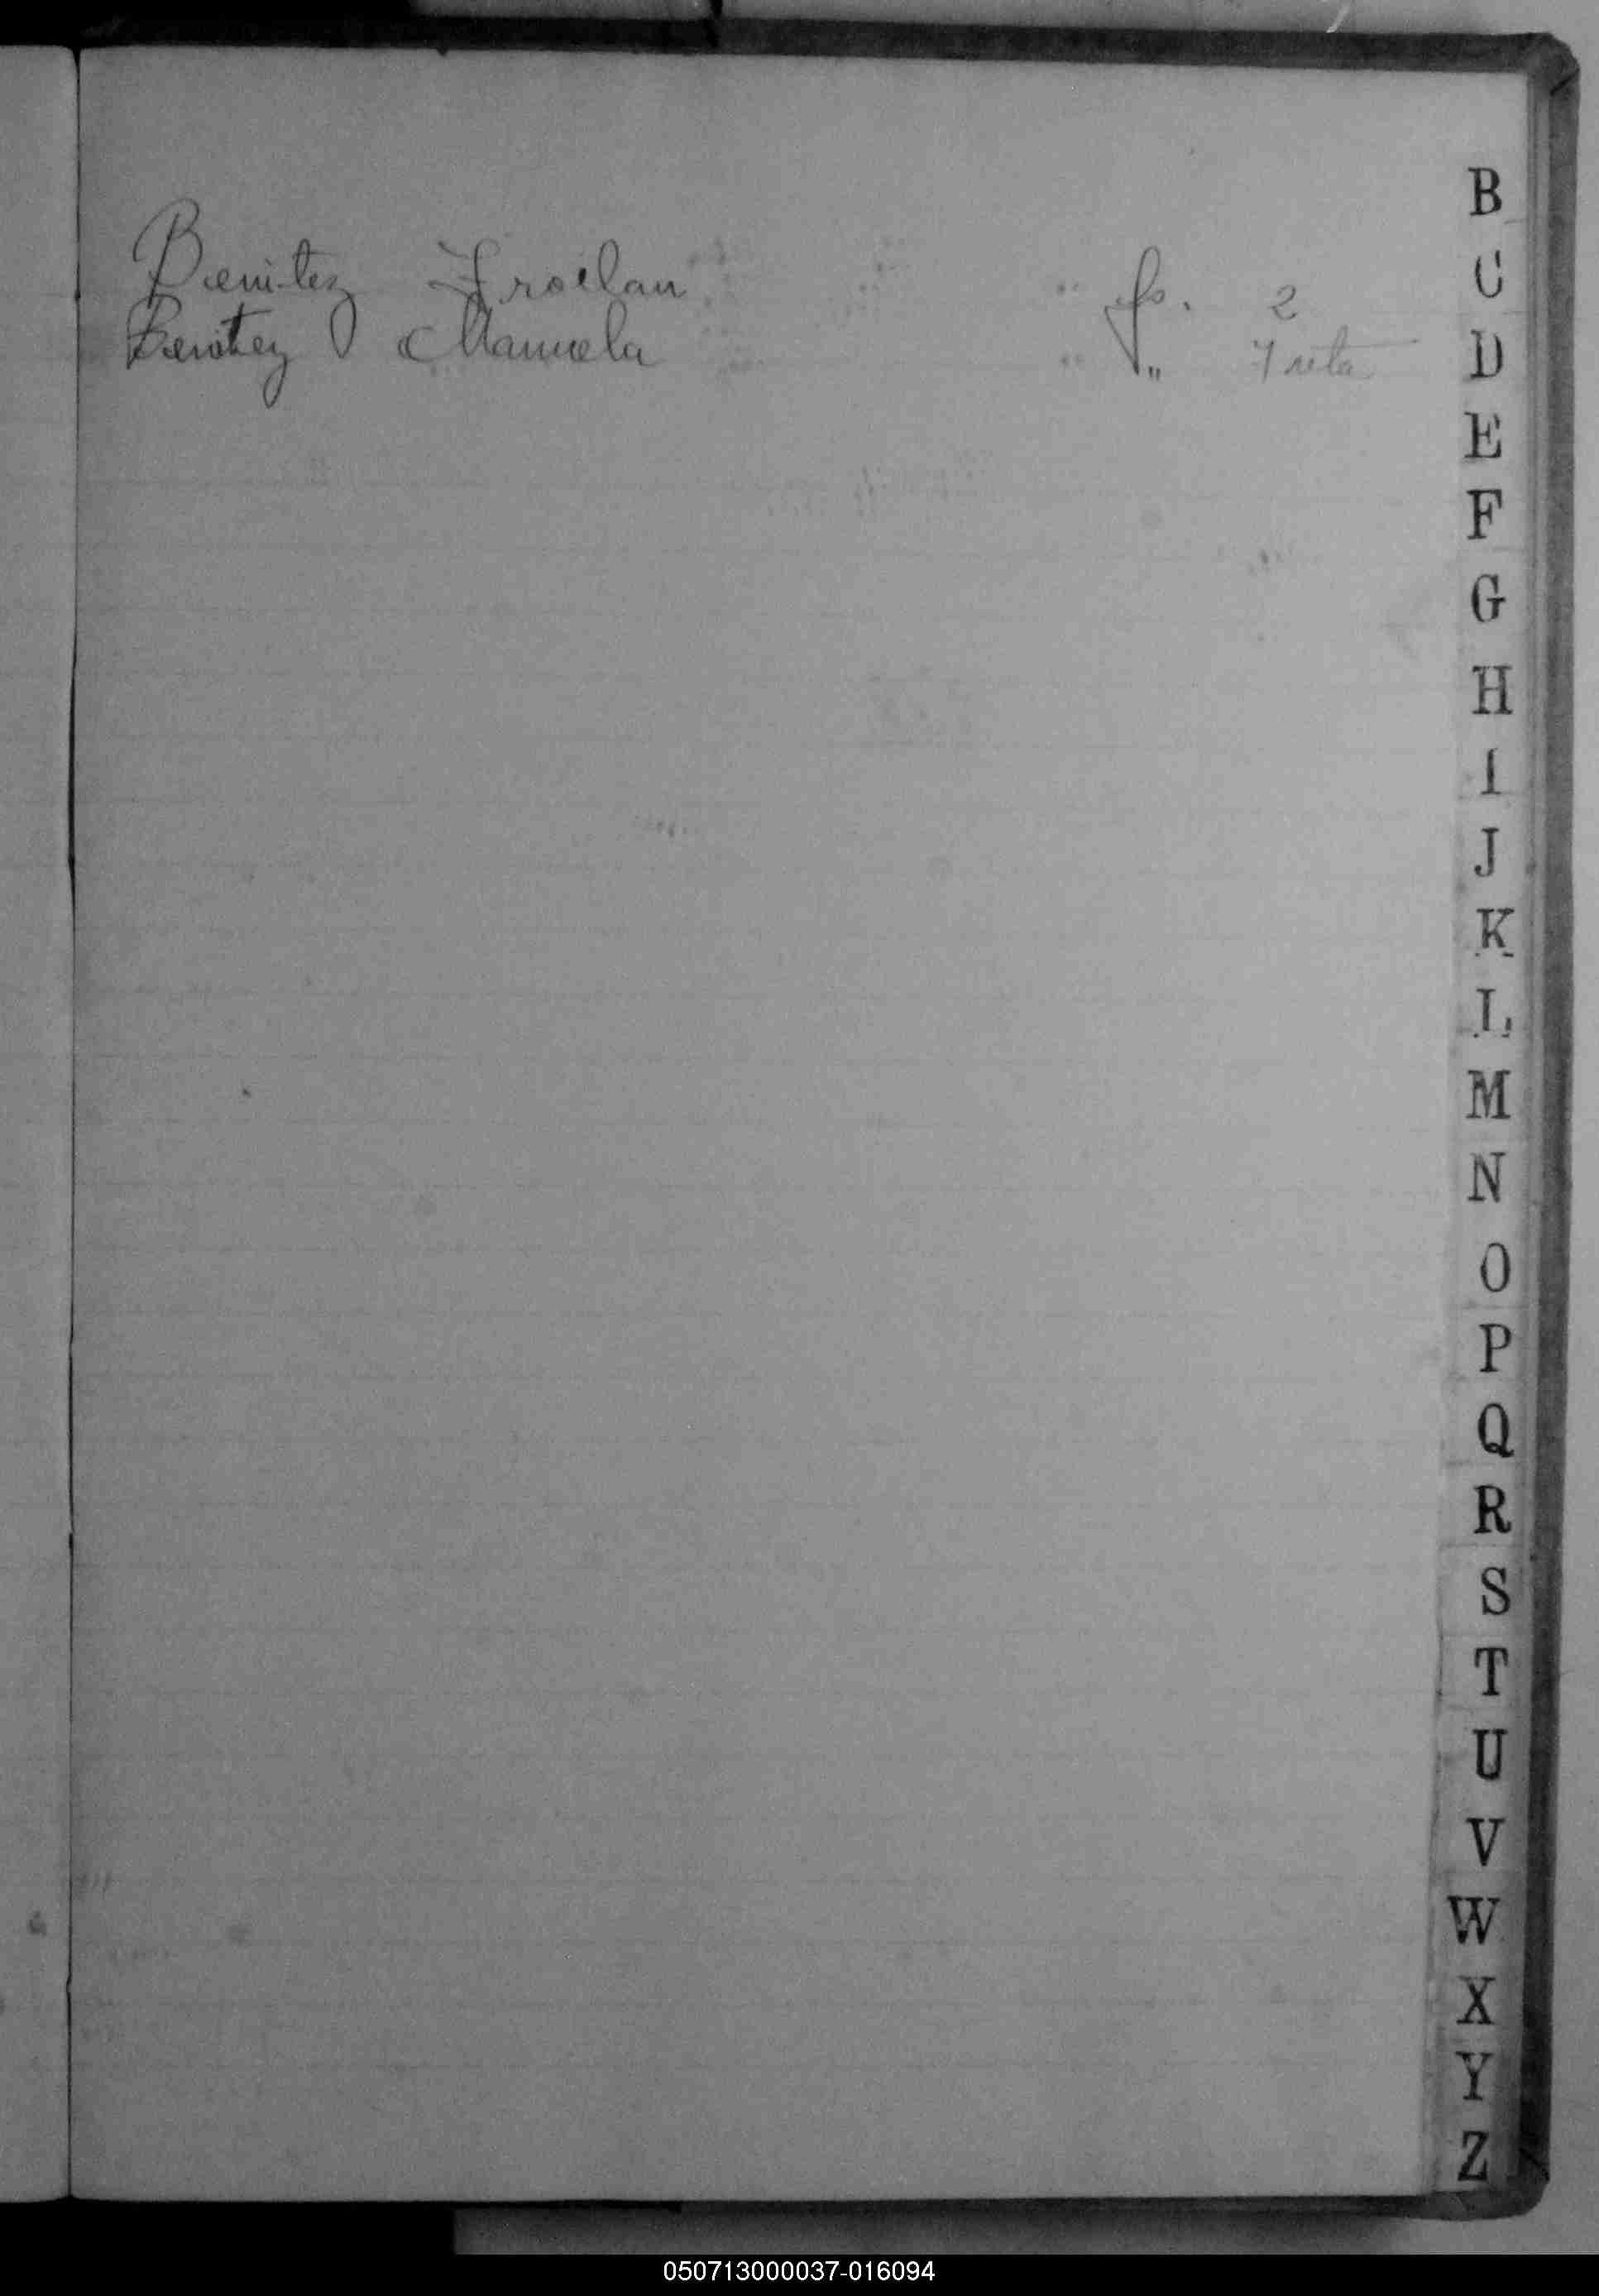 Benitez Froilan fs. 2
Benitez Manuela " 7 vta
B
C
D
E
F
G
H
I
J
K
L
M
N
O
P
Q
R
S
T
U
V
W
X
Y
Z
050713000037-016094